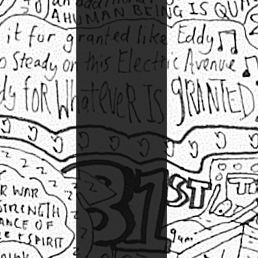 A HUMAN BEING IS QUA
it for granted like Eddy
o Steady on this Electric Avenue
dy for Whatever IS GRANTED
31ST
R WAR
STRENGTH
ANCE OF
E SPIRIT